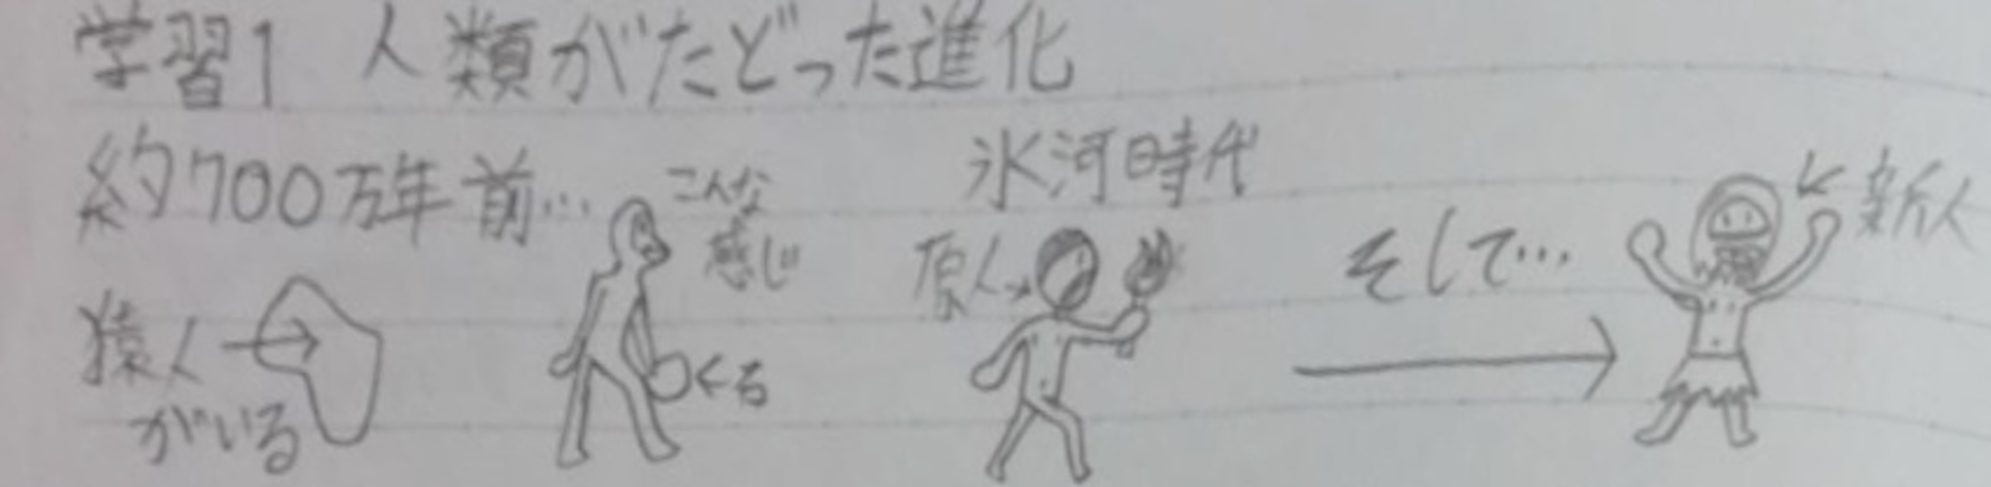 学習1 人類がたどった進化
約700万年前…
こんな
感じ
猿人
がいる
氷河時代
原人
そして…
新人